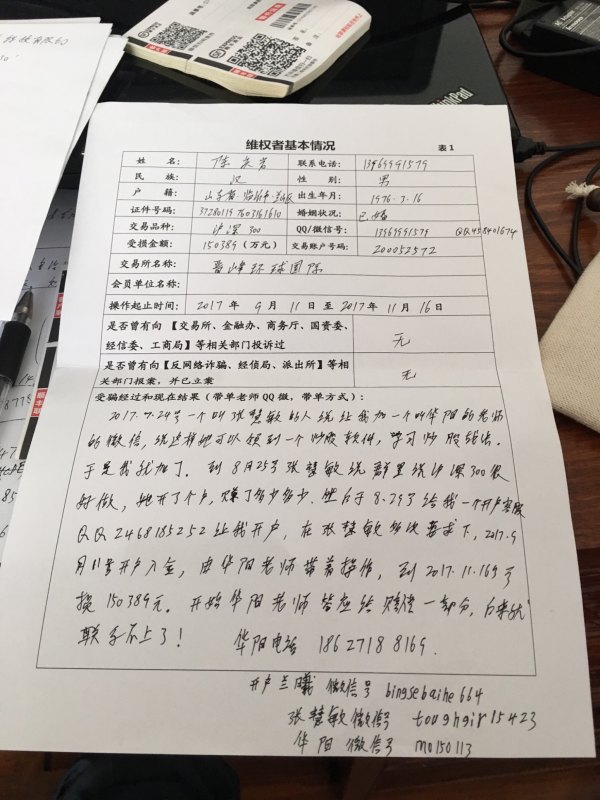 维权者基本情况 表1
姓名： 联系电话： 13969991579
民族： 汉 性别： 男
户籍： 山东省 临沂市 出生年月： 1976.3.16
证件号码： 婚姻状况： 已婚
交易品种： 沪深300 QQ/微信号： 13969991579 QQ458401674
受损金额： 150389（万元） 交易账户号码： 200052572
交易所名称： 晋峰环球国际
会员单位名称：
操作起止时间： 2017年9月11日至2017年11月16日
是否曾有向【交易所、金融办、商务厅、国资委、
经信委、工商局】等相关部门投诉过 无
是否曾有向【反网络诈骗、经侦局、派出所】等相
关部门报案，并已立案 无
受骗经过和现在结果（带单老师QQ微，带单方式）：
2017.7.24号一个叫张慧敏的人说让我加一个叫华阳的老师
的微信，说这样她可以领到一个炒股软件，学习炒股方法。
于是我就加了。到8月25号张慧敏说群里说沪深300很
好做，她开了个户，赚了多少多少。然后于8.29号给我一个开户客服
QQ2468185252让我开户，在张慧敏多次要求下，2017.9
月11号开户入金，由华阳老师带着操作，到2017.11.16号
损150389元。开始华阳老师答应给赔偿一部分，后来就
联系不上了！ 华阳电话 18627188169.
开户兰曦 微信号 bingsebaihe664
张慧敏微信号 toughgirl5423
华阳 微信号 mo150113